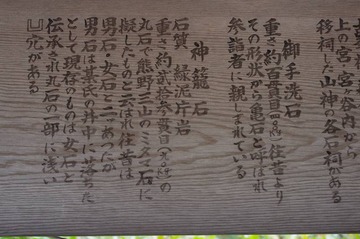 上の宮 宮ヶ谷内から
移祠した山神の各石祠がある
御手洗石
重さ約百貫目 往昔より
その形状から亀石と呼ばれ
参詣者に親しまれている
神籠石
石質 緑泥片岩
重さ約弐拾参貫目の
丸石で熊野三山のミタマ石に
擬したものと云はれ往昔は
男石・女石と二つあったが
男石は某氏の井中に落ちた
として現存のものは女石と
伝承され丸石の一部に浅い
凹穴がある